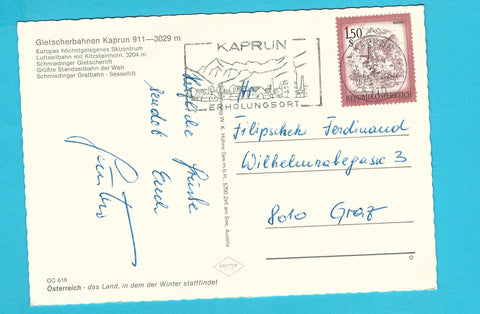 Gletscherbahnen Kaprun 911—3029 m
Europas höchstgelegenes Skizentrum
Luftseilbahn mit Kitzsteinhorn, 3204 m
Schmiedinger Gletscherlift
Größte Standseilbahn der Welt
Schmiedinger Gratbahn - Sessellift
KAPRUN
ERHOLUNGSORT
1.50
S
REPUBLIK ÖSTERREICH
Herzliche Grüße
sendet Euch
Günther
W. K. Hühne Ges.m.b.H., 5700 Zell am See, Austria
Filipschek Ferdinand
Wilhelmrabegasse 3
8010 Graz
OC 616
Österreich - das Land, in dem der Winter stattfindet